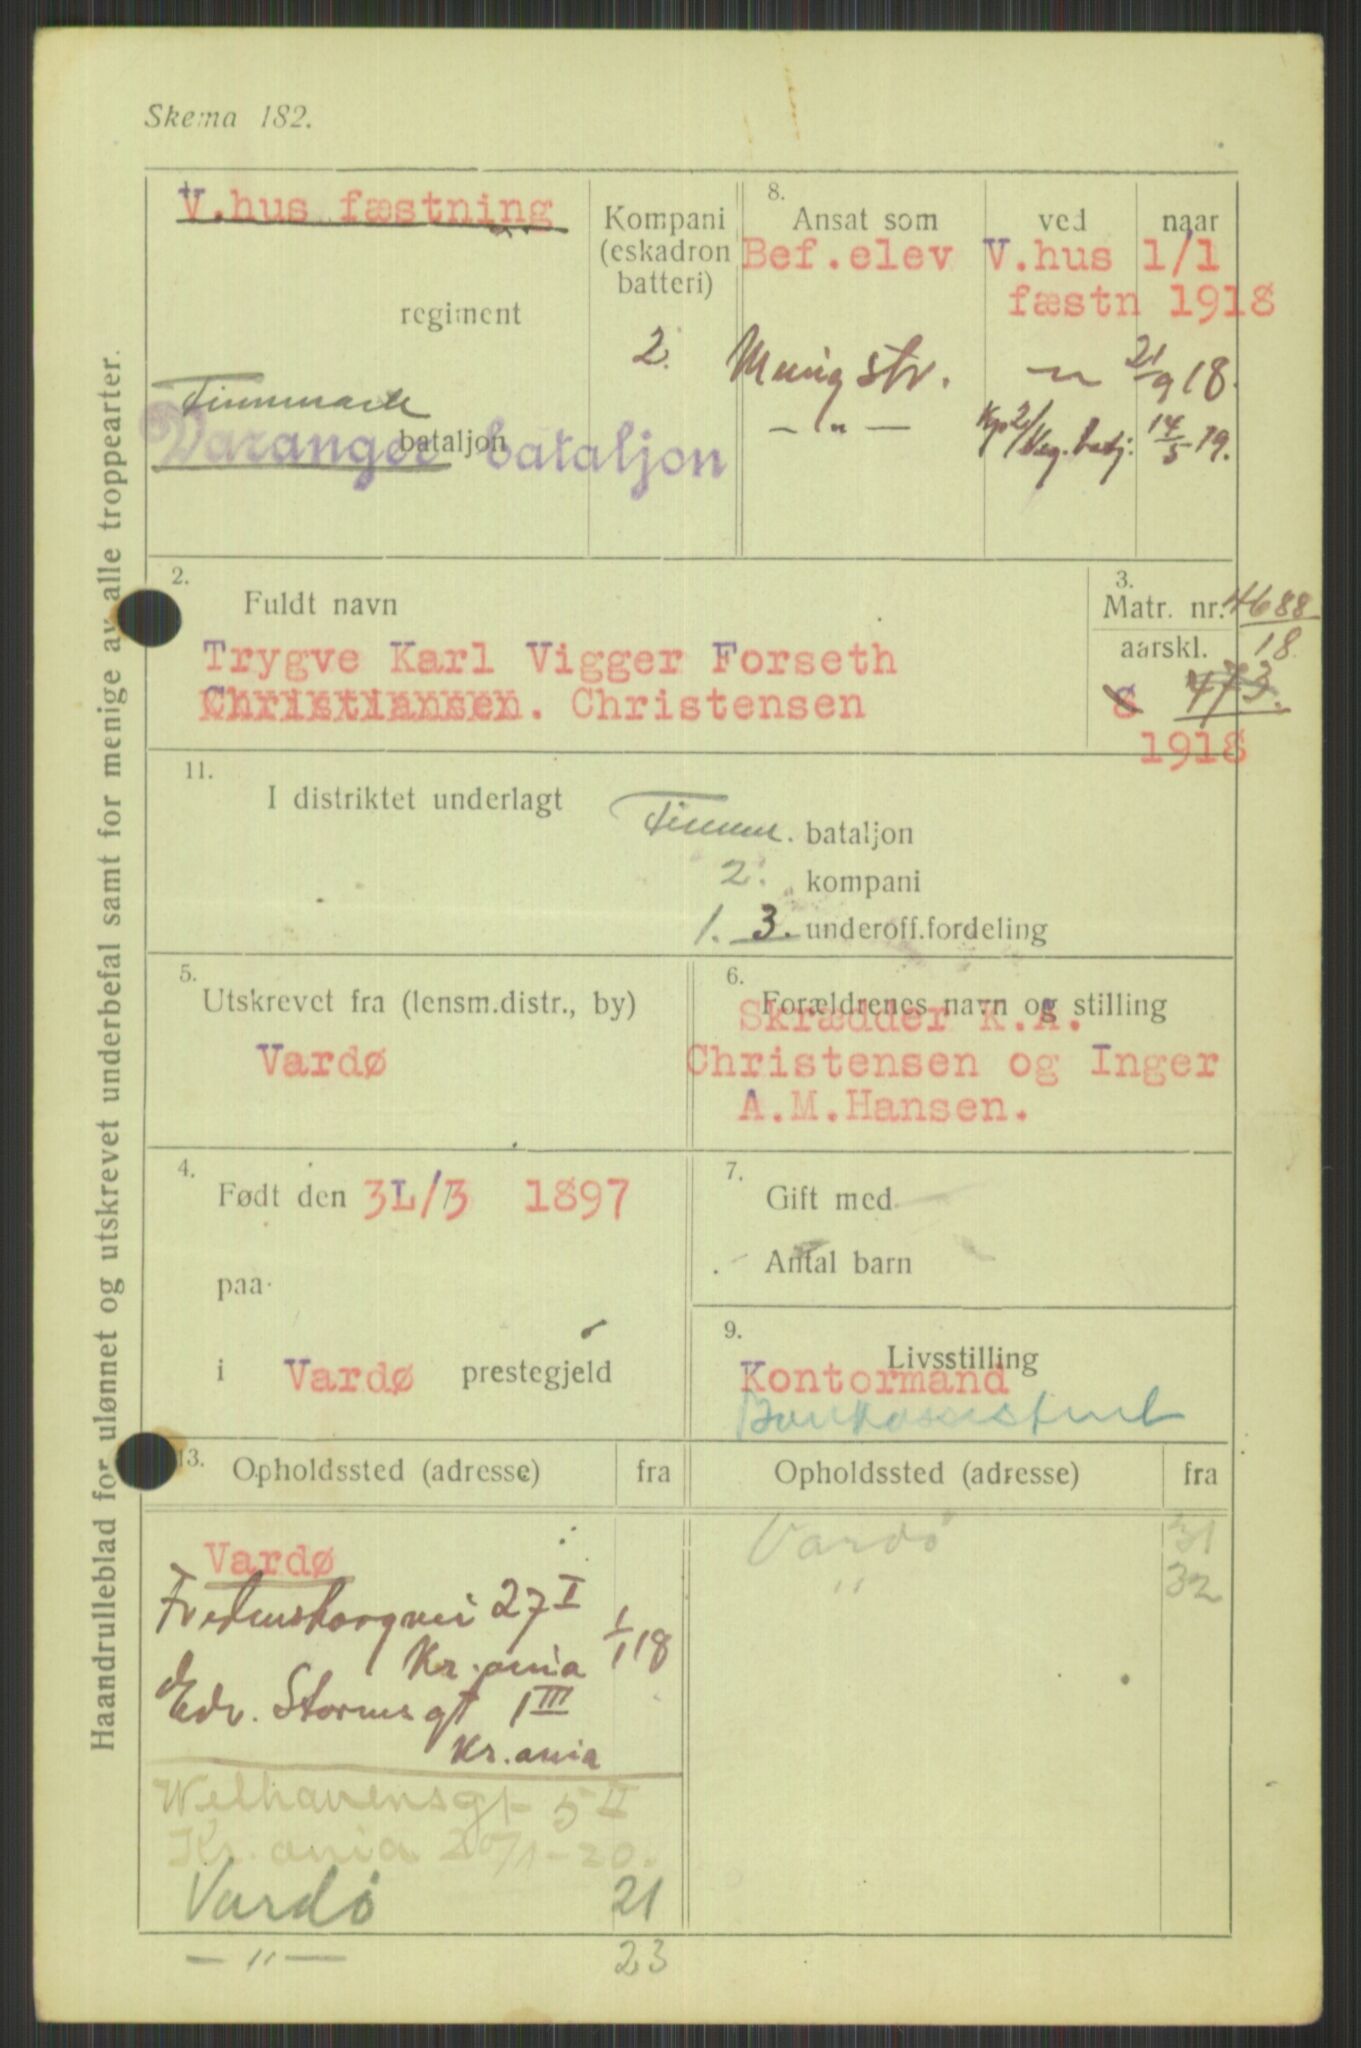 Skema 182.
V.hus fæstning
regiment
Finnmark
bataljon
Varanger bataljon
Kompani
(eskadron
batteri)
2.
8.
Ansat som ved naar
Bef.elev V.hus 1/1
fæstn 1918
Menig str. 21/9 18.
— " — Kp 2/Vag. batj. 14/5 19.
2.
Fuldt navn
Trygve Karl Vigger Forseth
Christiansen. Christensen
3.
Matr. nr. 4688
aarskl. 18
8 473.
1918
11.
I distriktet underlagt
Finnm. bataljon
2. kompani
1. 3. underoff.fordeling
5.
Utskrevet fra (lensm.distr., by)
Vardø
6.
Forældrenes navn og stilling
Skrædder K.A.
Christensen og Inger
A.M.Hansen.
4.
Født den 31/3 1897
paa
i Vardø prestegjeld
7.
Gift med
Antal barn
9.
Livsstilling
Kontormand
Bankassistent
13.
Opholdssted (adresse) fra
Vardø
27 I
Kr.ania 1/1 18
Edv. Stormsgt 1 III
Kr.ania
Welhavensgt 5 II
Kr.ania 20/1-20.
Vardø 21
— " — 23
Opholdssted (adresse) fra
Vardø 31
" 32
Haandrulleblad for ulønnet og utskrevet underbefal samt for menige av alle troppearter.